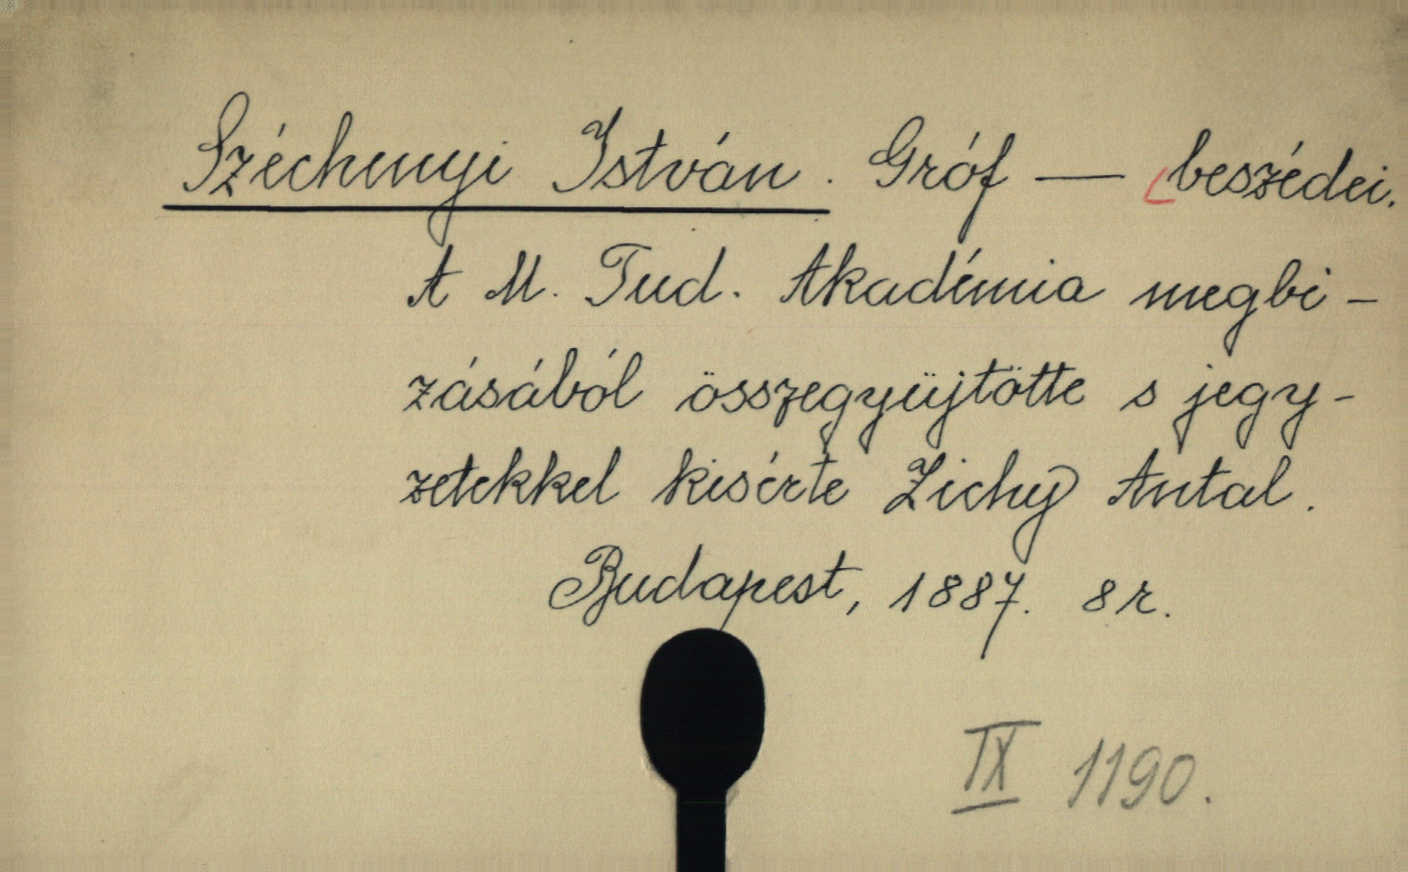 Széchenyi István. Gróf — beszédei.
A M. Tud. Akadémia megbi-
zásából összegyüjtötte s jegy-
zetekkel kisérte Zichy Antal.
Budapest, 1887. 8r.
IX 1190.